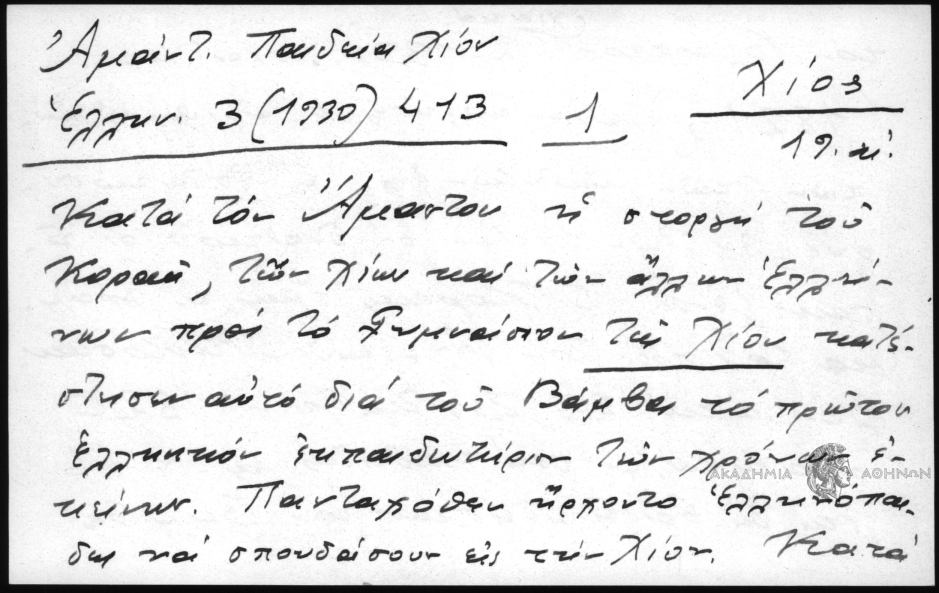 Ἀμάντ. Παιδεία Χίου
Ἑλλην. 3 (1930) 413 1 Χίος
19. αἰ.
Κατά τόν Ἄμαντον ἡ στοργή τοῦ
Κοραῆ, τῶν Χίων καί τῶν ἄλλων Ἑλλή-
νων πρός τό Γυμνάσιον τῆς Χίου κατέ-
στησεν αὐτό διά τοῦ Βάμβα τό πρῶτον
ἑλληνικόν ἐκπαιδευτήριον τῶν χρόνων ἐ-
κείνων. Πανταχόθεν ἤρχοντο Ἑλληνόπαι-
δες νά σπουδάσουν εἰς τήν Χίον. Κατά
ΑΚΑΔΗΜΙΑ ΑΘΗΝΩΝ